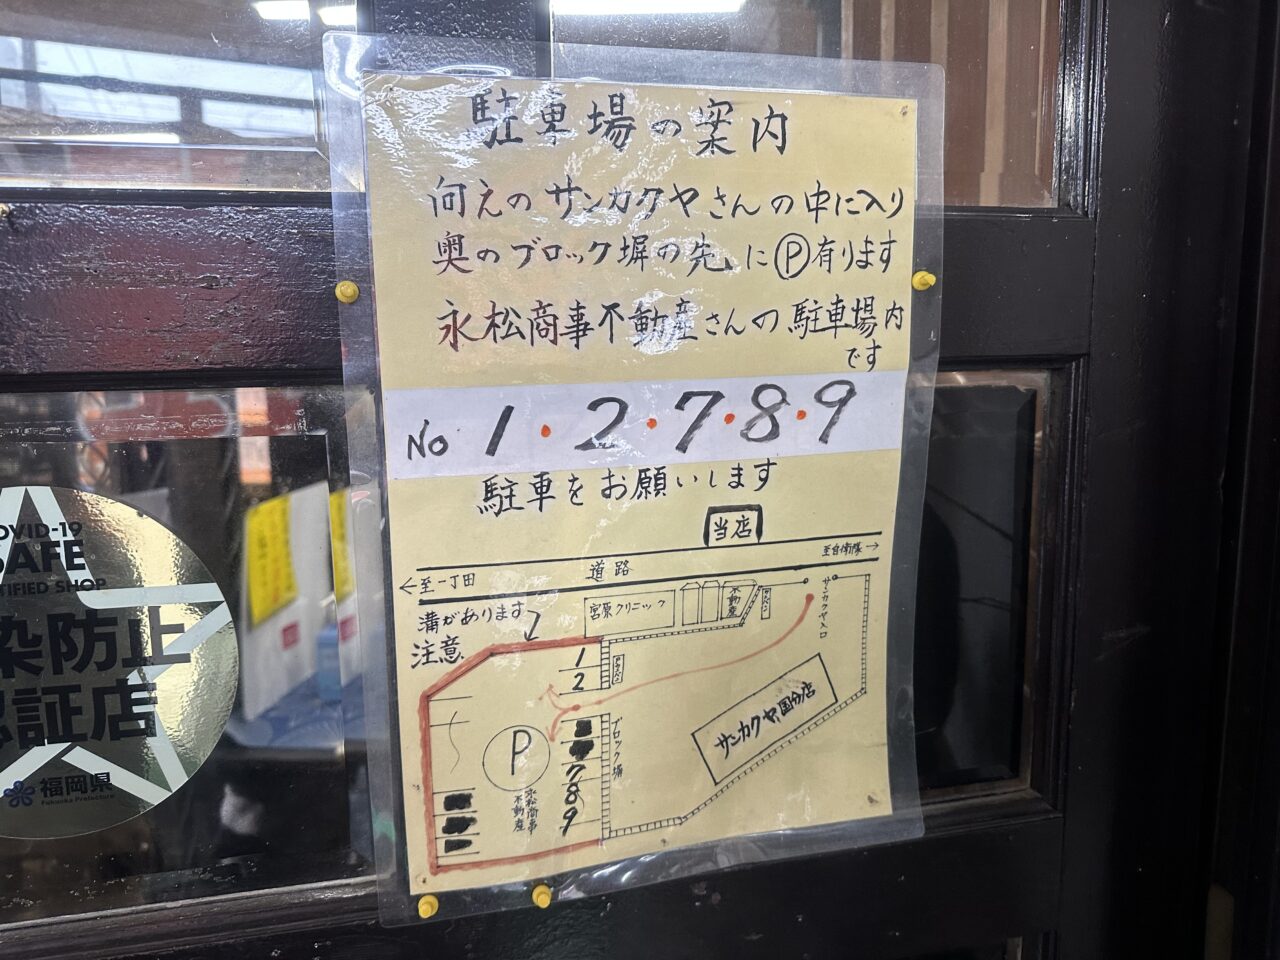 駐車場の案内
向えのサンカクヤさんの中に入り
奥のブロック塀の先に Ⓟ有ります
永松商事不動産さんの駐車場内
です
No 1・2・7・8・9
駐車をお願いします
当店
至自衛隊→
道路
←至一丁田
溝があります
注意
宮原クリニック
不動産
サンカクヤ入口
1
2
ブロック塀
サンカクヤ国分店
P
7
8
9
永松商事
不動産
COVID-19
SAFE
CERTIFIED SHOP
染防止
認証店
福岡県
Fukuoka Prefecture